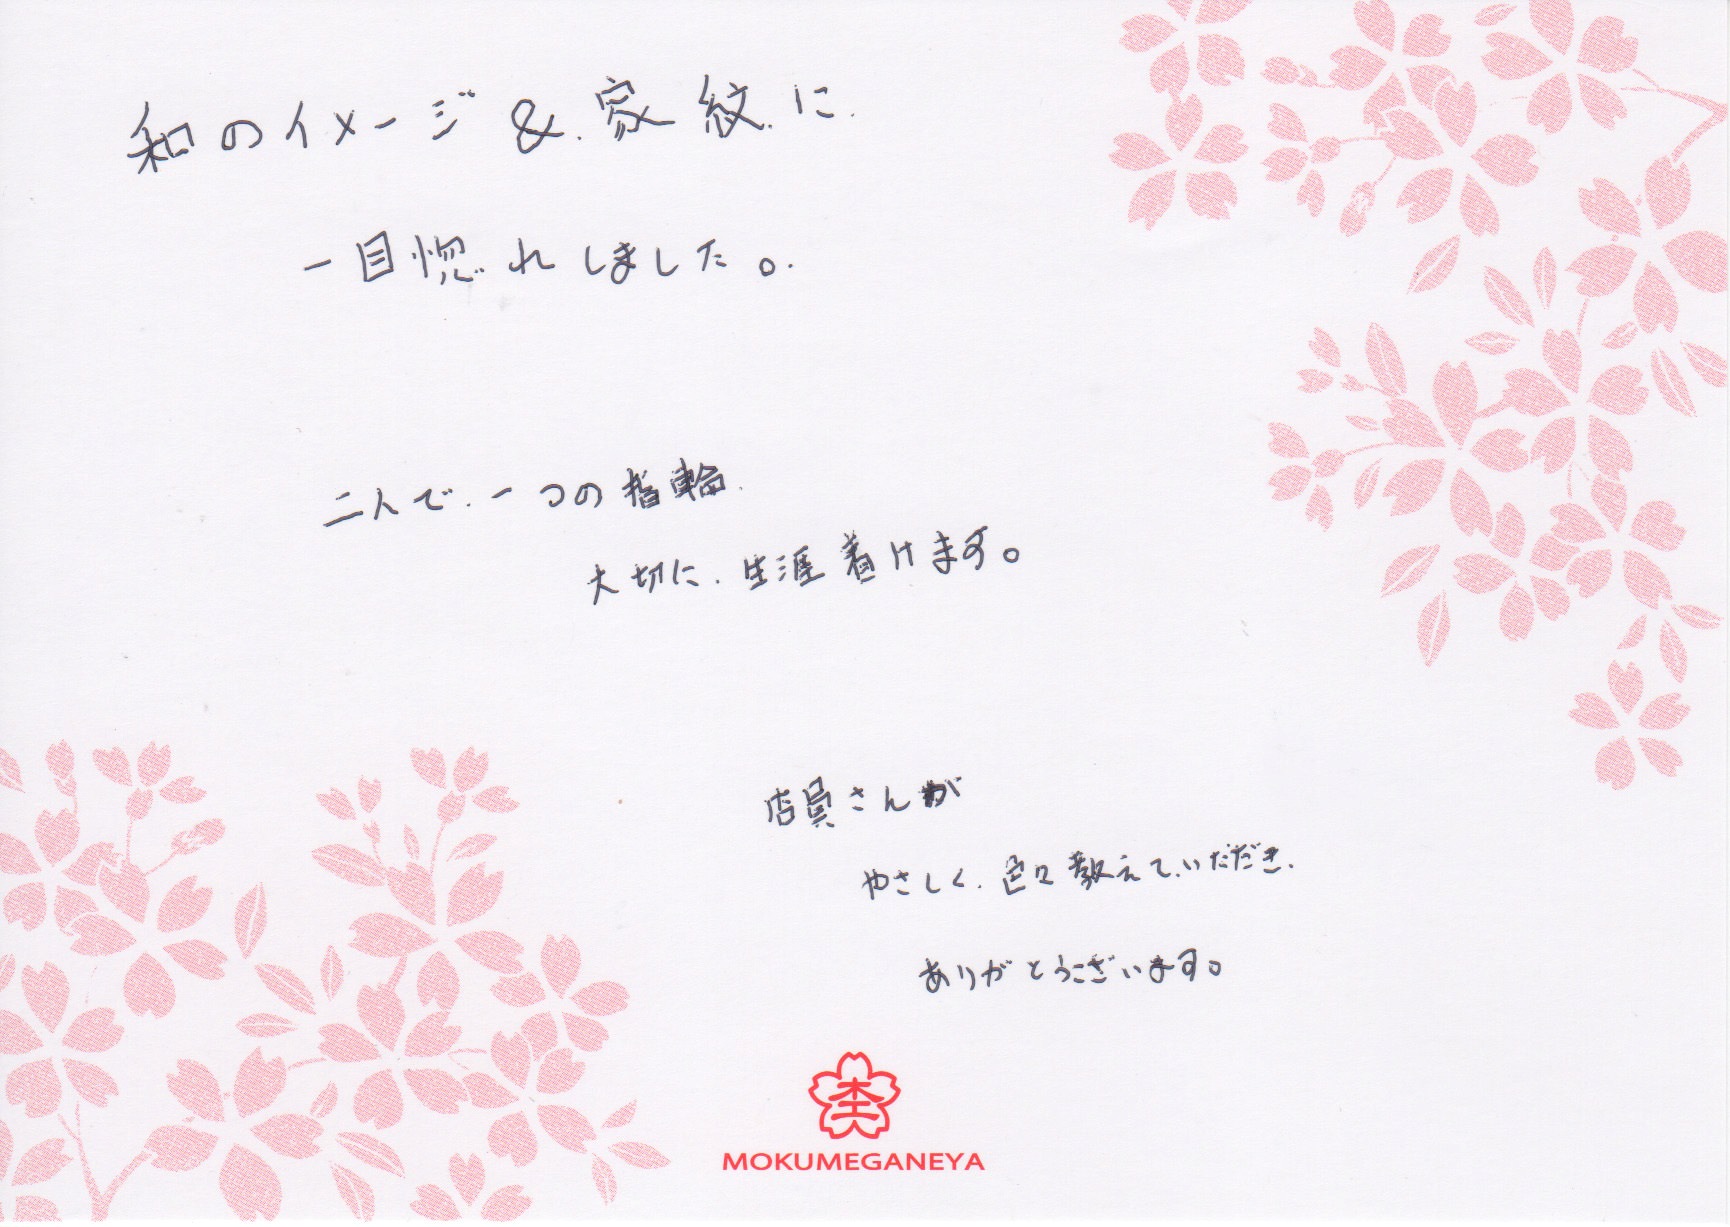 和のイメージ&家紋に
一目惚れしました。
二人で、一つの指輪、
大切に、生涯着けます。
店員さんが
やさしく、色々教えていただき、
ありがとうございます。
MOKUMEGANEYA